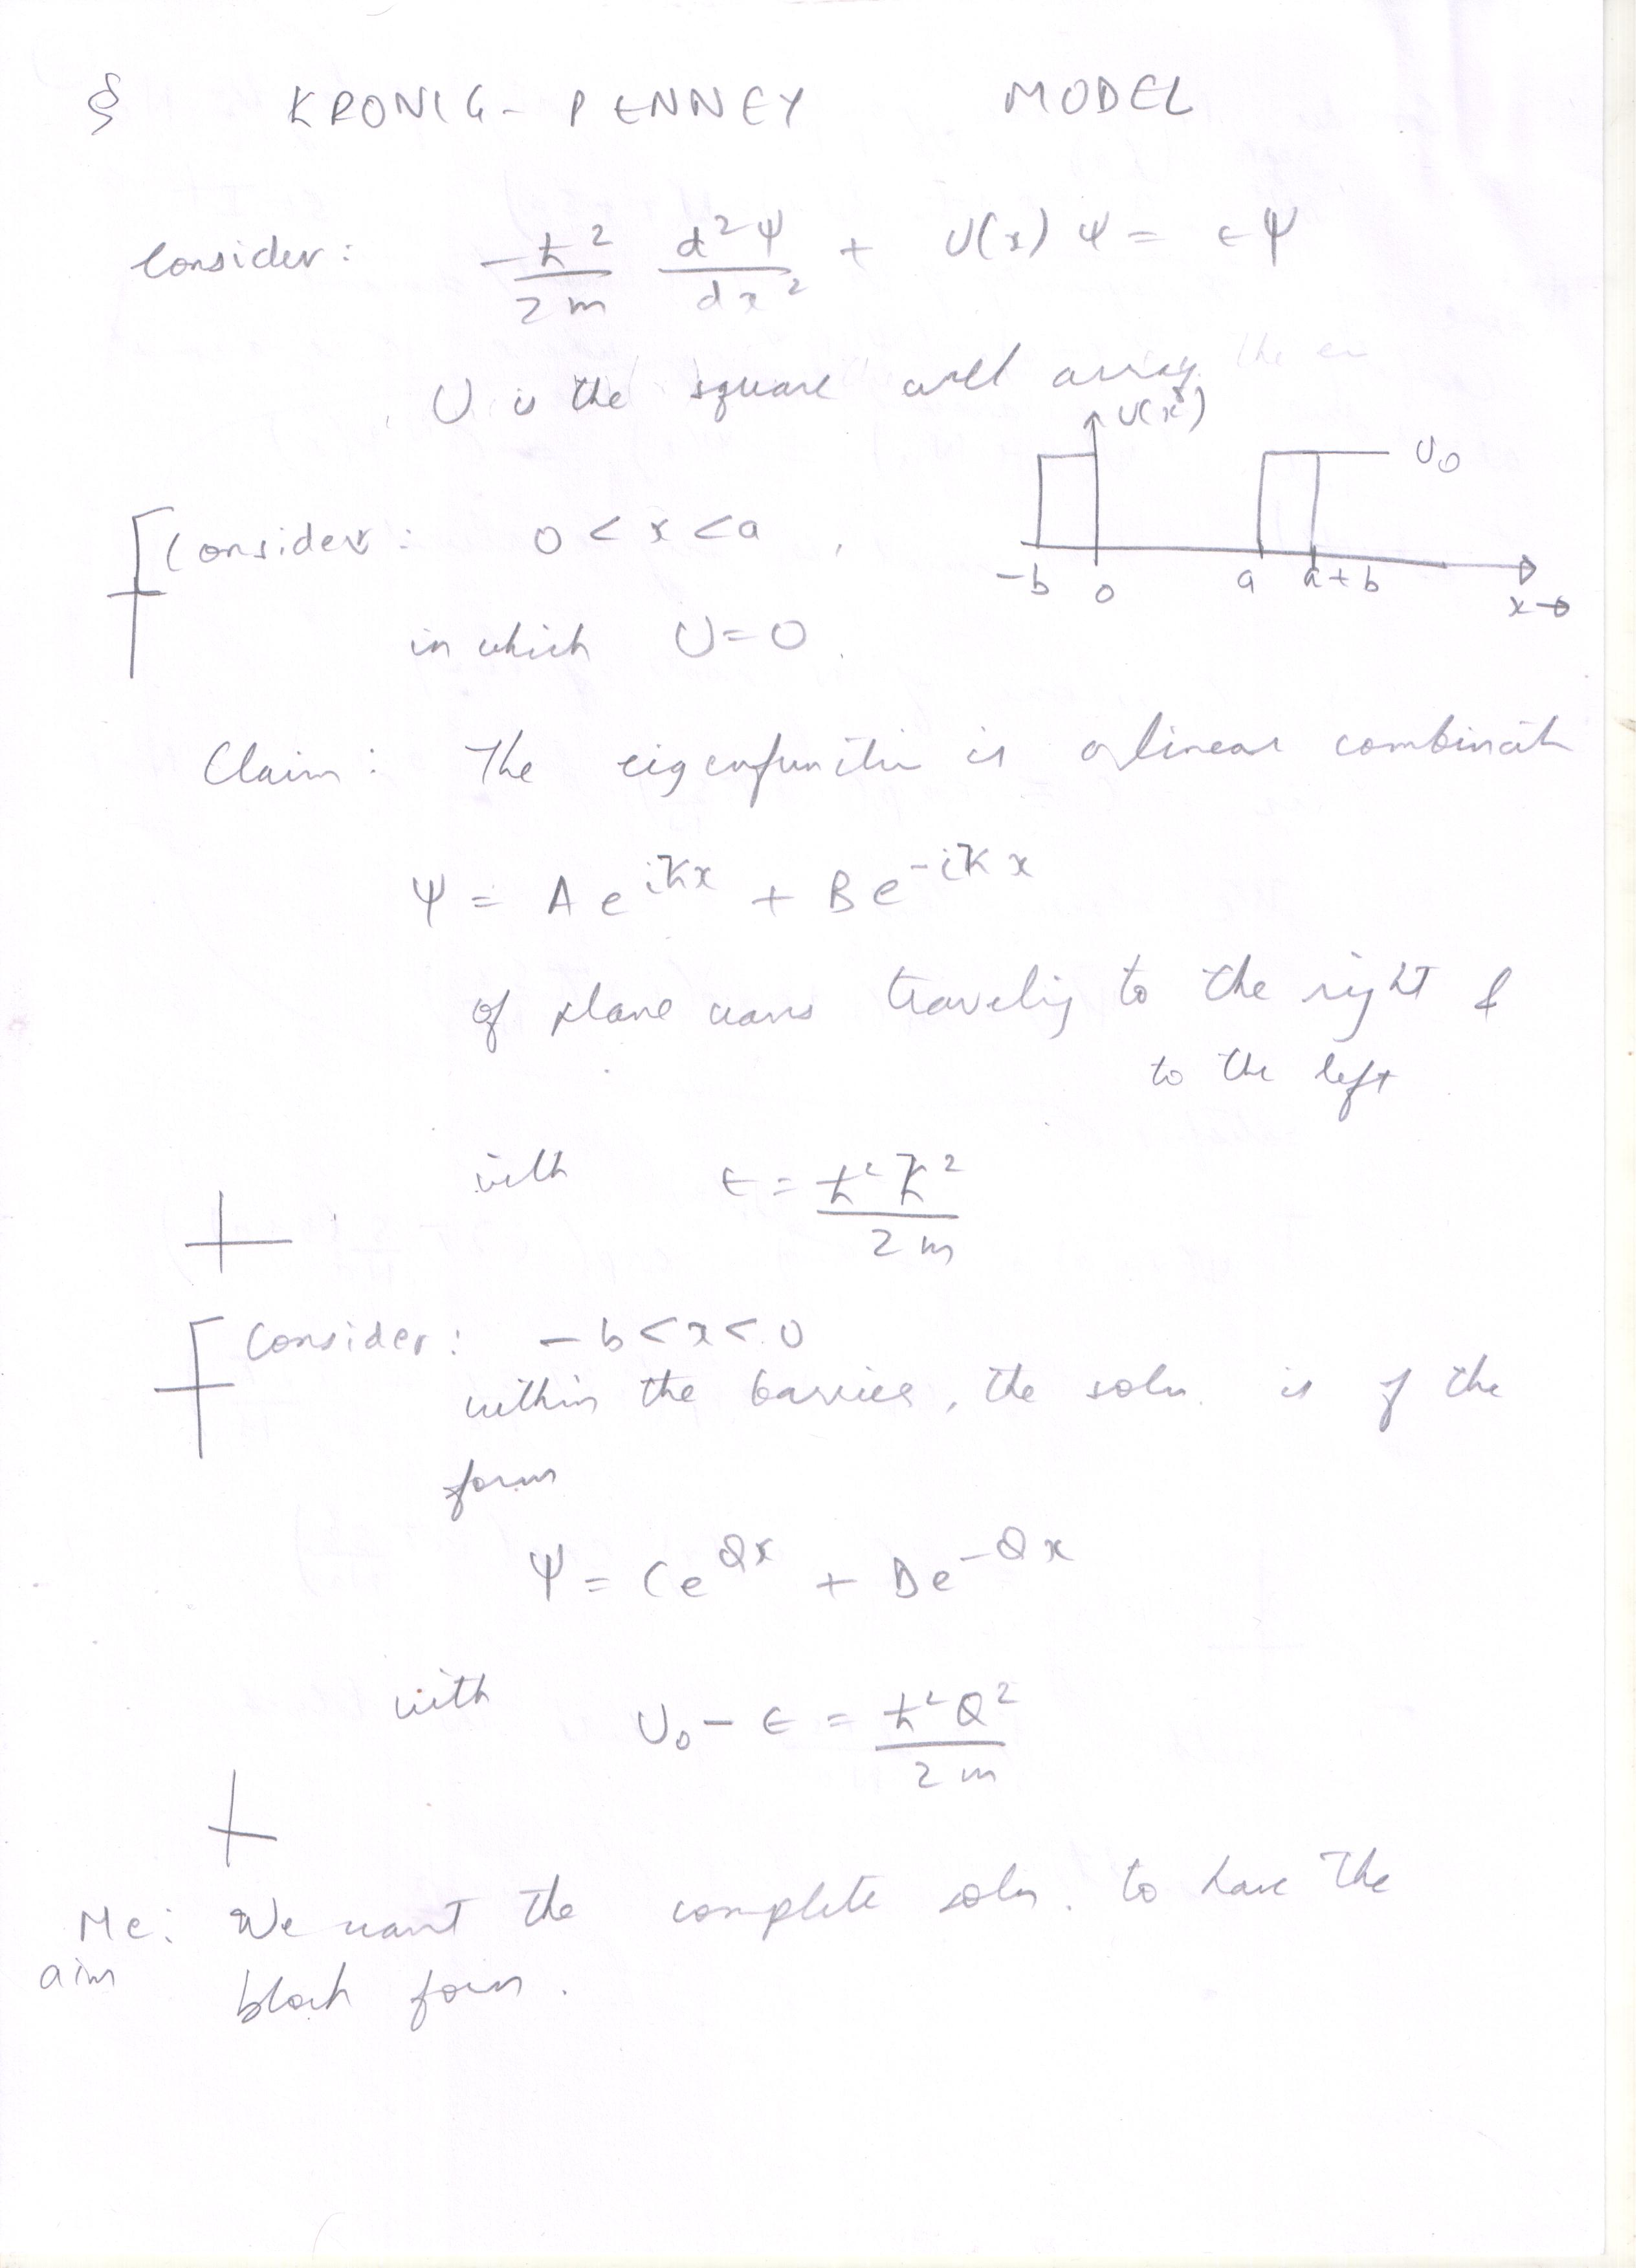 § KRONIG-PENNEY MODEL
Consider: -ħ²/2m d²ψ/dx² + U(x) ψ = ϵψ
U is the square well array.
U(x)
U₀
-b 0 a a+b
x→
Consider: 0 < x < a,
in which U=0.
Claim: The eigenfunction is a linear combinatn
ψ = A e^{iKx} + B e^{-iKx}
of plane waves traveling to the right &
to the left
with ϵ = ħ²K²/2m
Consider: -b < x < 0
within the barrier, the soln. is of the
form
ψ = C e^{Qx} + D e^{-Qx}
with U₀ - ϵ = ħ²Q²/2m
Me: We want the complete soln. to have the
aim
bloch form.